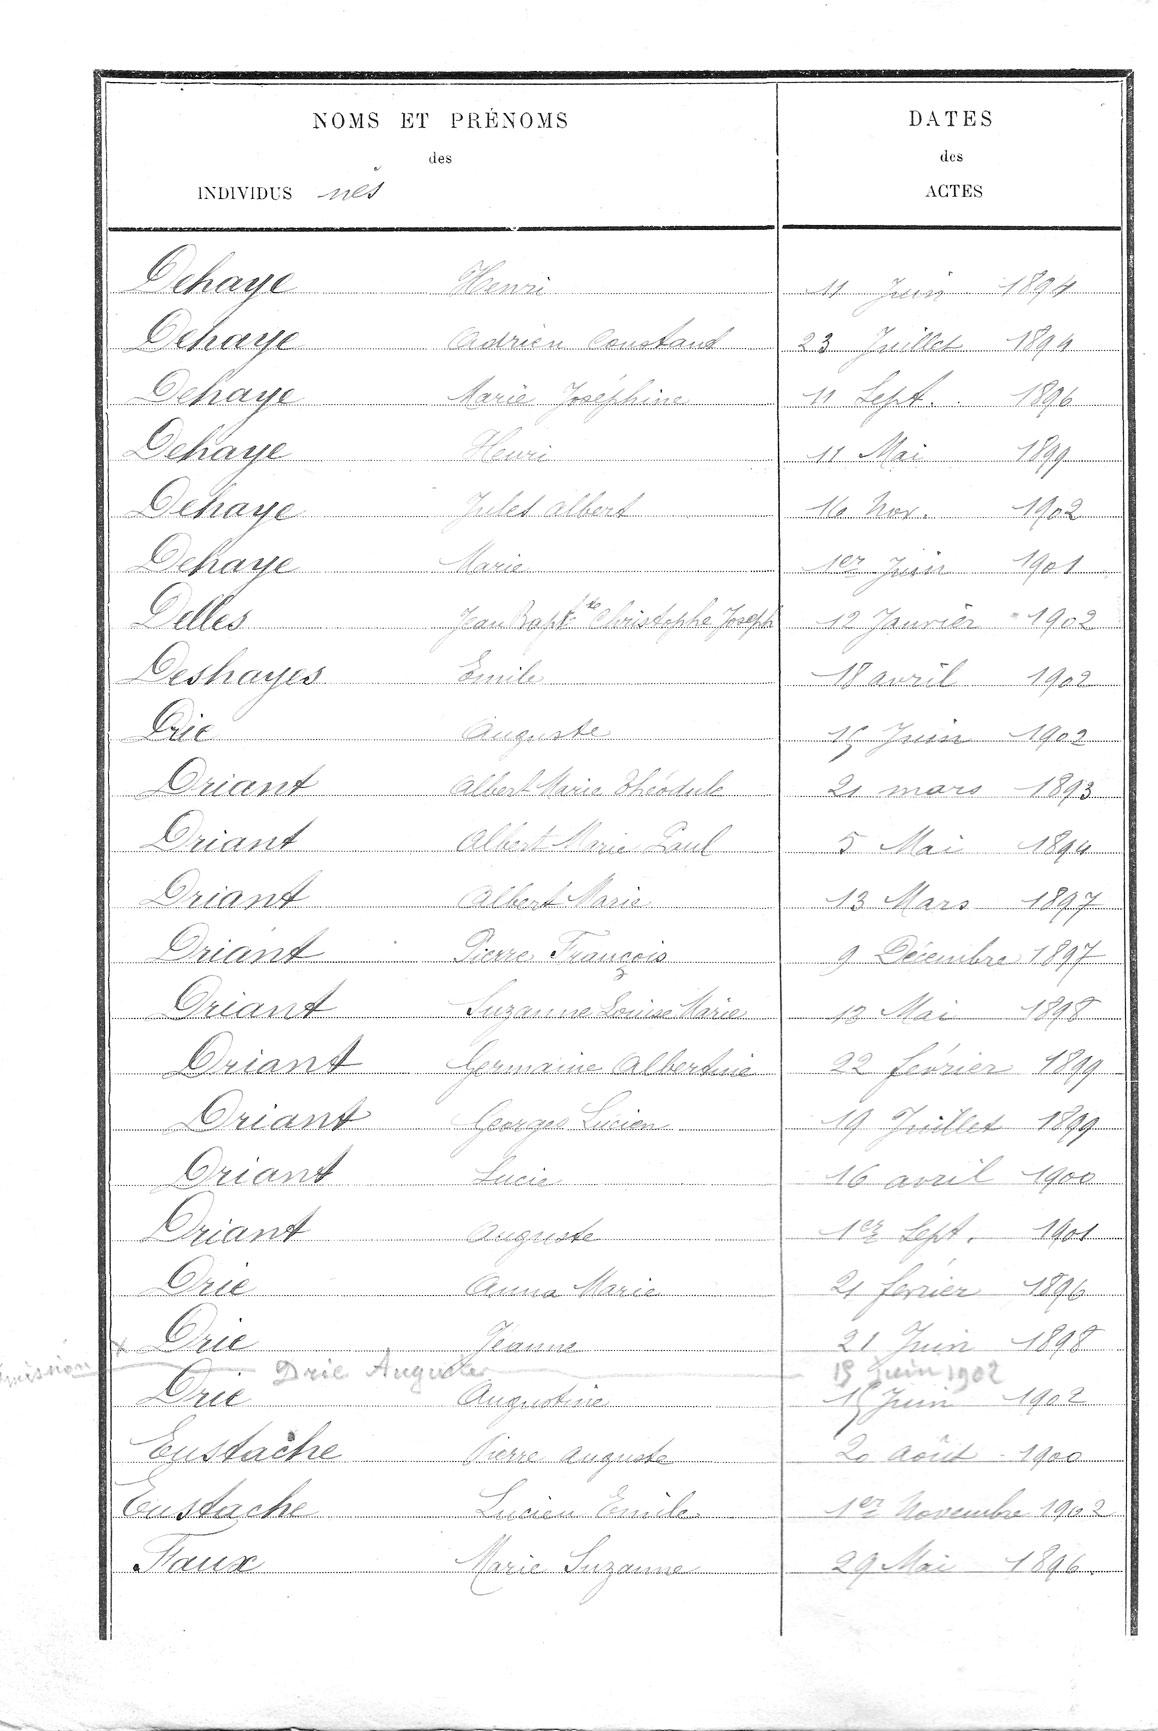 NOMS ET PRÉNOMS
des
INDIVIDUS nés
DATES
des
ACTES
Dehaye Henri 11 Juin 1894
Dehaye Adrien Constant 23 Juillet 1894
Dehaye Marie Joséphine 11 Sept. 1896
Dehaye Henri 11 Mai 1899
Dehaye Jules Albert 16 Nov. 1902
Dehaye Marie 1er Juin 1901
Delles Jean Bapt.te Christophe Joseph 12 Janvier 1902
Deshayes Emile 18 avril 1902
Drie Auguste 15 Juin 1902
Driant Albert Marie Théodule 21 mars 1893
Driant Albert Marie Paul 5 Mai 1894
Driant Albert Marie 13 Mars 1897
Driant Pierre François 9 Décembre 1897
Driant Suzanne Louise Marie 13 Mai 1898
Driant Germaine Albertine 22 février 1899
Driant Georges Lucien 19 Juillet 1899
Driant Lucie 16 avril 1900
Driant Auguste 1er Sept. 1901
Drie Anna Marie 21 février 1896
Drie Jeanne 21 Juin 1898
Omission x Drie Auguste 15 Juin 1902
Drie Augustine 15 Juin 1902
Eustache Pierre Auguste 20 août 1900
Eustache Lucien Emile 1er Novembre 1902
Faux Marie Suzanne 29 Mai 1896.